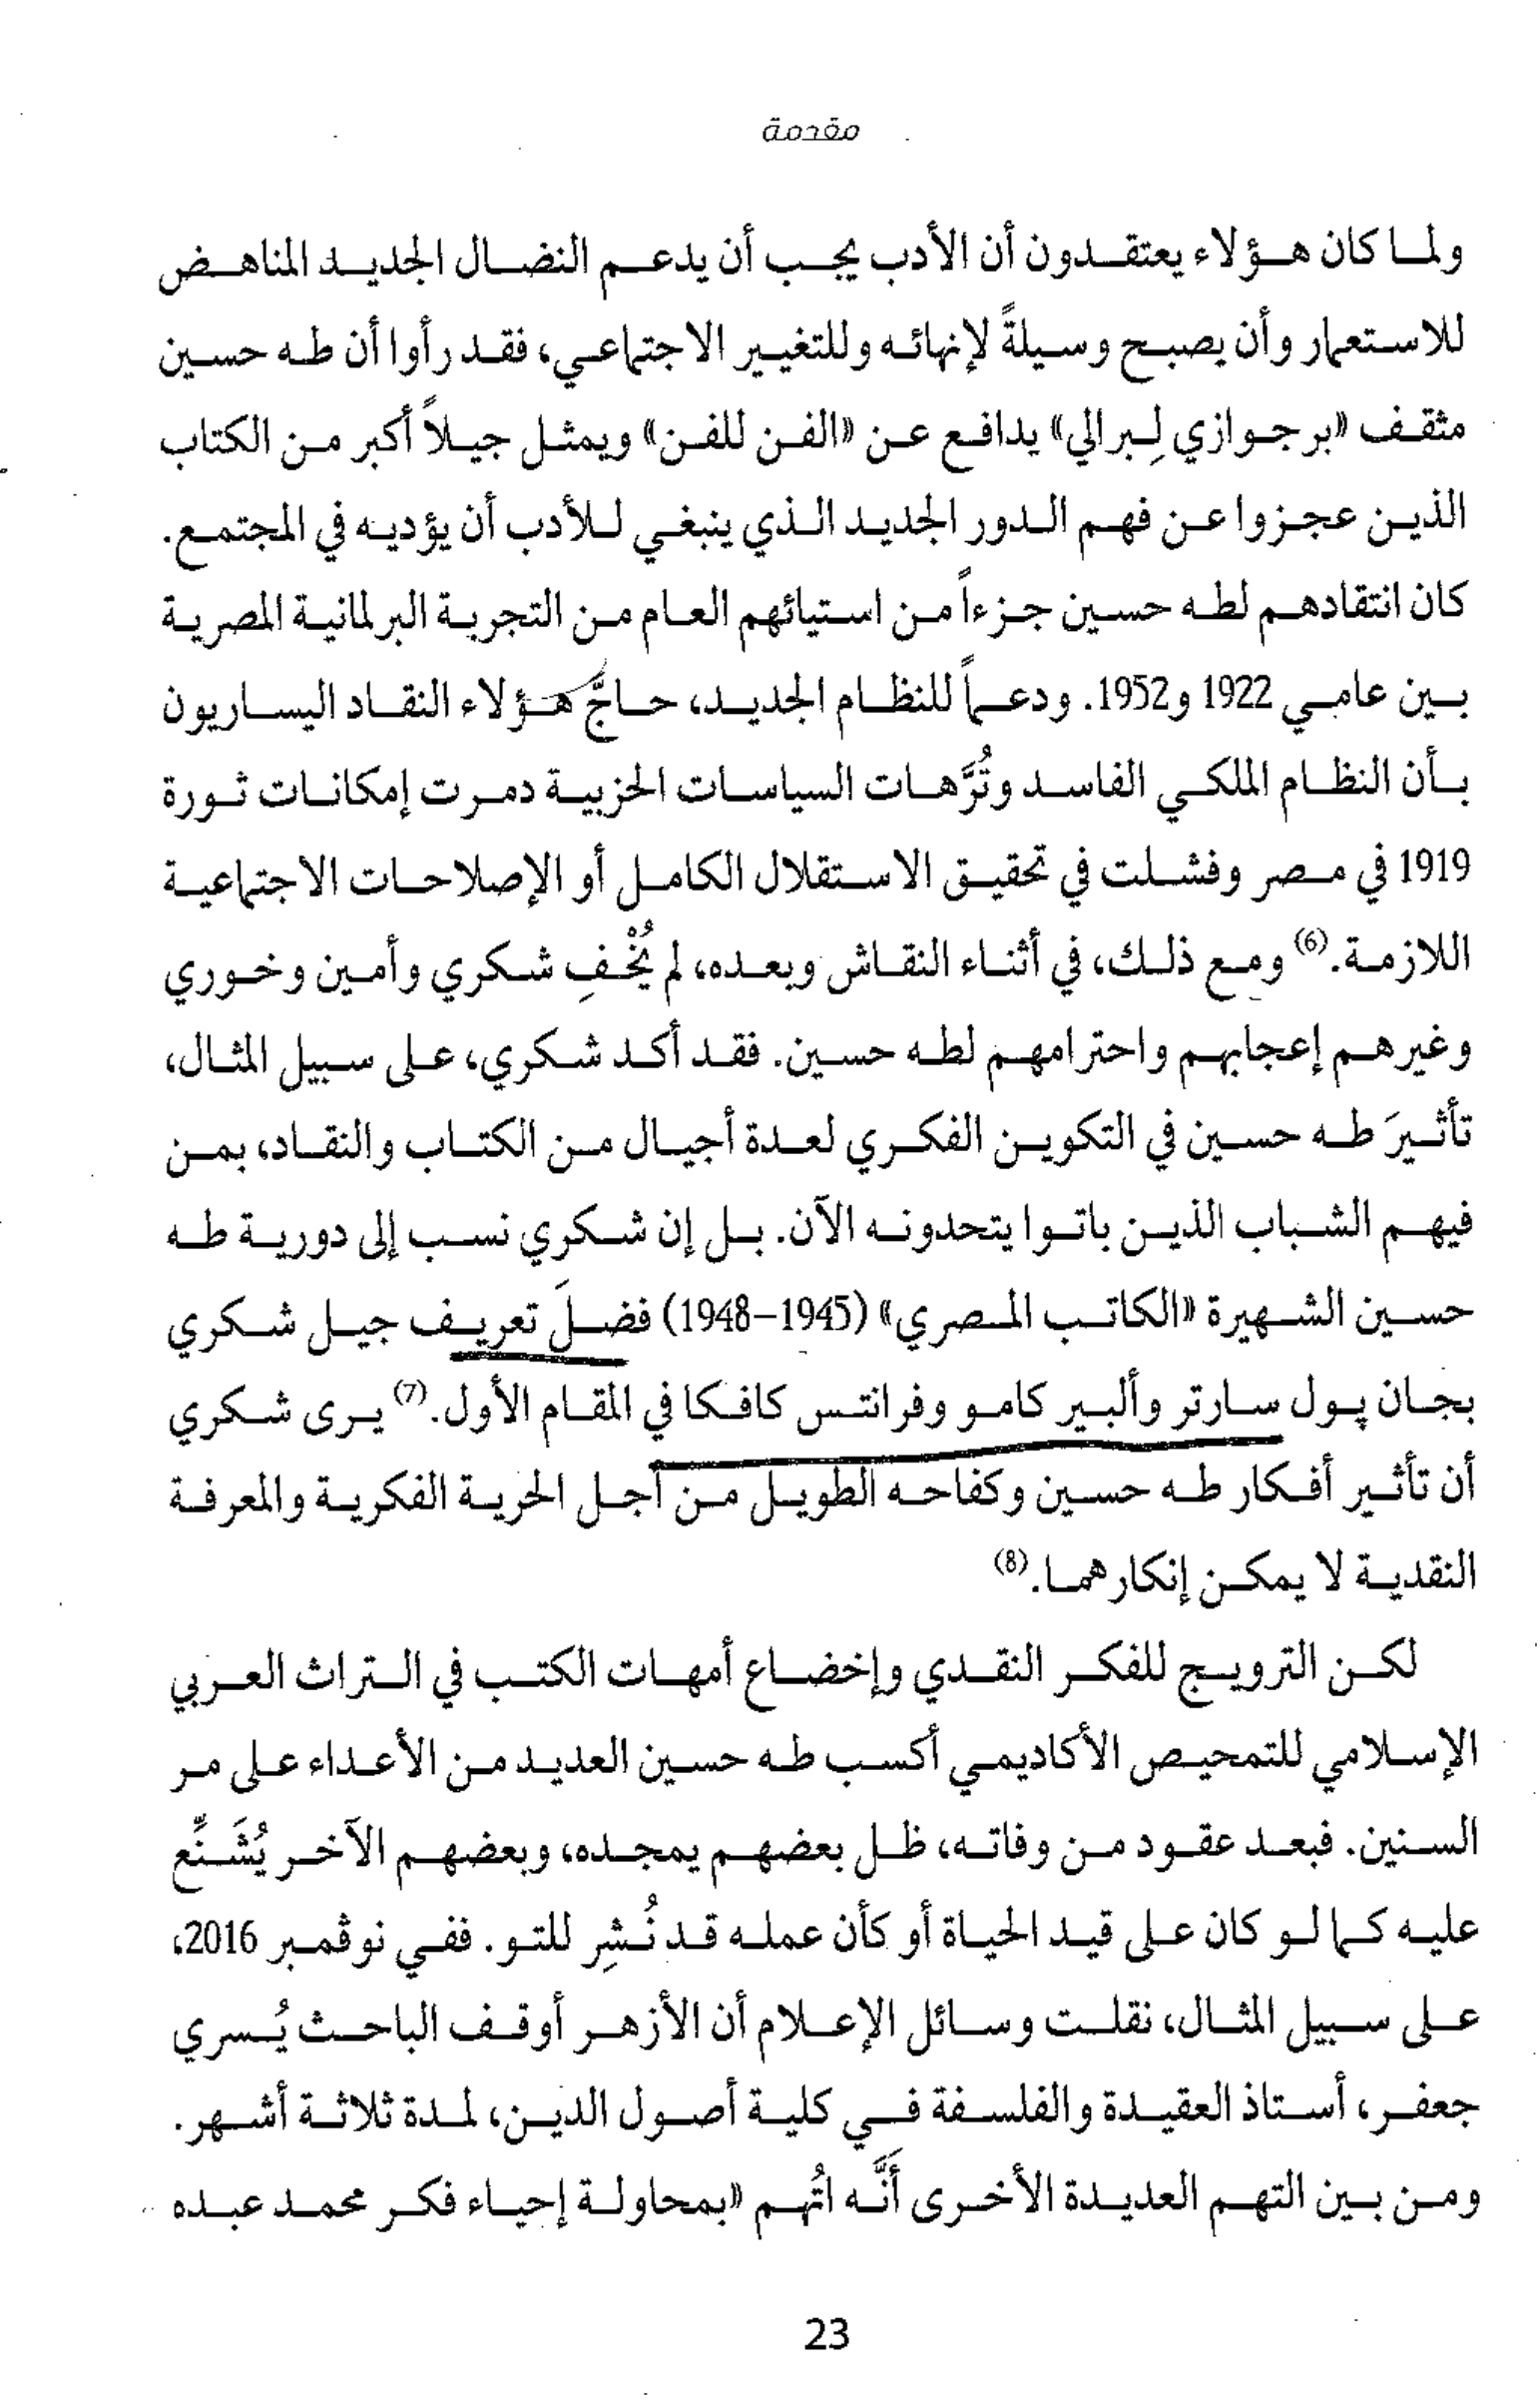 مقدمة
ولما كان هؤلاء يعتقدون أن الأدب يجب أن يدعم النضال الجديد المناهض
للاستعمار وأن يصبح وسيلةً لإنهائه وللتغيير الاجتماعي، فقد رأوا أن طه حسين
مثقف «برجوازي لِبرالي» يدافع عن «الفن للفن» ويمثل جيلاً أكبر من الكتاب
الذين عجزوا عن فهم الدور الجديد الذي ينبغي للأدب أن يؤديه في المجتمع.
كان انتقادهم لطه حسين جزءاً من استيائهم العام من التجربة البرلمانية المصرية
بين عامي 1922 و1952. ودعماً للنظام الجديد، حاجَّ هؤلاء النقاد اليساريون
بأن النظام الملكي الفاسد وتُرَّهات السياسات الحزبية دمرت إمكانات ثورة
1919 في مصر وفشلت في تحقيق الاستقلال الكامل أو الإصلاحات الاجتماعية
اللازمة.(6) ومع ذلك، في أثناء النقاش وبعده، لم يُخْفِ شكري وأمين وخوري
وغيرهم إعجابهم واحترامهم لطه حسين. فقد أكد شكري، على سبيل المثال،
تأثيرَ طه حسين في التكوين الفكري لعدة أجيال من الكتاب والنقاد، بمن
فيهم الشباب الذين باتوا يتحدونه الآن. بل إن شكري نسب إلى دورية طه
حسين الشهيرة «الكاتب المصري» (1945–1948) فضلَ تعريف جيل شكري
بجان پول سارتر وألبير كامو وفرانتس كافكا في المقام الأول.(7) يرى شكري
أن تأثير أفكار طه حسين وكفاحه الطويل من أجل الحرية الفكرية والمعرفة
النقدية لا يمكن إنكارهما.(8)
لكن الترويج للفكر النقدي وإخضاع أمهات الكتب في التراث العربي
الإسلامي للتمحيص الأكاديمي أكسب طه حسين العديد من الأعداء على مر
السنين. فبعد عقود من وفاته، ظل بعضهم يمجده، وبعضهم الآخر يُشَنِّع
عليه كما لو كان على قيد الحياة أو كأن عمله قد نُشِر للتو. ففي نوڤمبر 2016،
على سبيل المثال، نقلت وسائل الإعلام أن الأزهر أوقف الباحث يُسري
جعفر، أستاذ العقيدة والفلسفة في كلية أصول الدين، لمدة ثلاثة أشهر.
ومن بين التهم العديدة الأخرى أَنَّه اتُهم «بمحاولة إحياء فكر محمد عبده
23